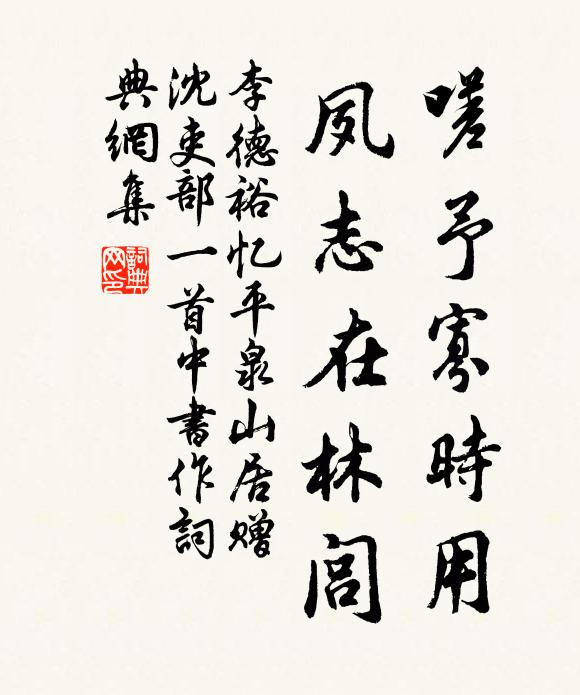 嗟予寡時用
夙志在林闾
李德裕忆平泉山居赠
沈吏部一首中書作詞
典網集
詞典
网印